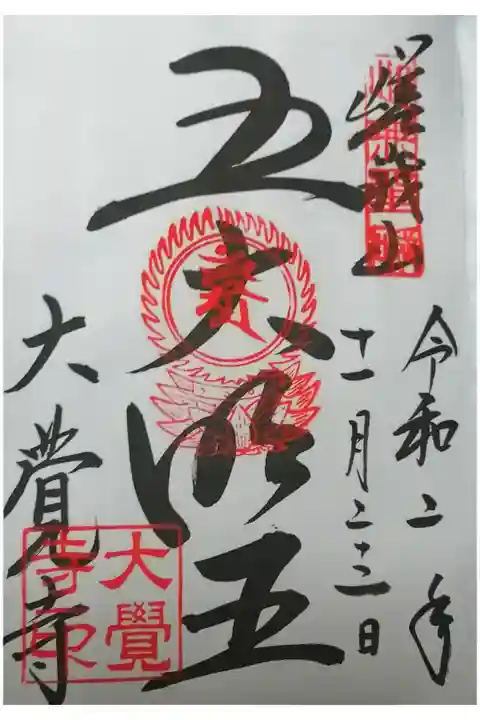 嵯峨山
令和二年
十一月二十三日
五大明王
大覺寺
大覺
寺印